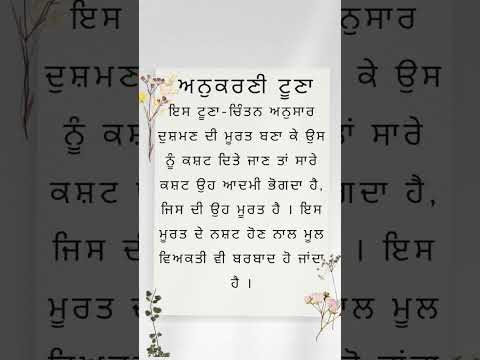 ਅਨੁਕਰਣੀ ਟੂਣਾ
ਇਸ ਟੂਣਾ-ਚਿੰਤਨ ਅਨੁਸਾਰ
ਦੁਸ਼ਮਣ ਦੀ ਮੂਰਤ ਬਣਾ ਕੇ ਉਸ
ਨੂੰ ਕਸ਼ਟ ਦਿਤੇ ਜਾਣ ਤਾਂ ਸਾਰੇ
ਕਸ਼ਟ ਉਹ ਆਦਮੀ ਭੋਗਦਾ ਹੈ,
ਜਿਸ ਦੀ ਉਹ ਮੂਰਤ ਹੈ । ਇਸ
ਮੂਰਤ ਦੇ ਨਸ਼ਟ ਹੋਣ ਨਾਲ ਮੂਲ
ਵਿਅਕਤੀ ਵੀ ਬਰਬਾਦ ਹੋ ਜਾਂਦਾ
ਹੈ ।